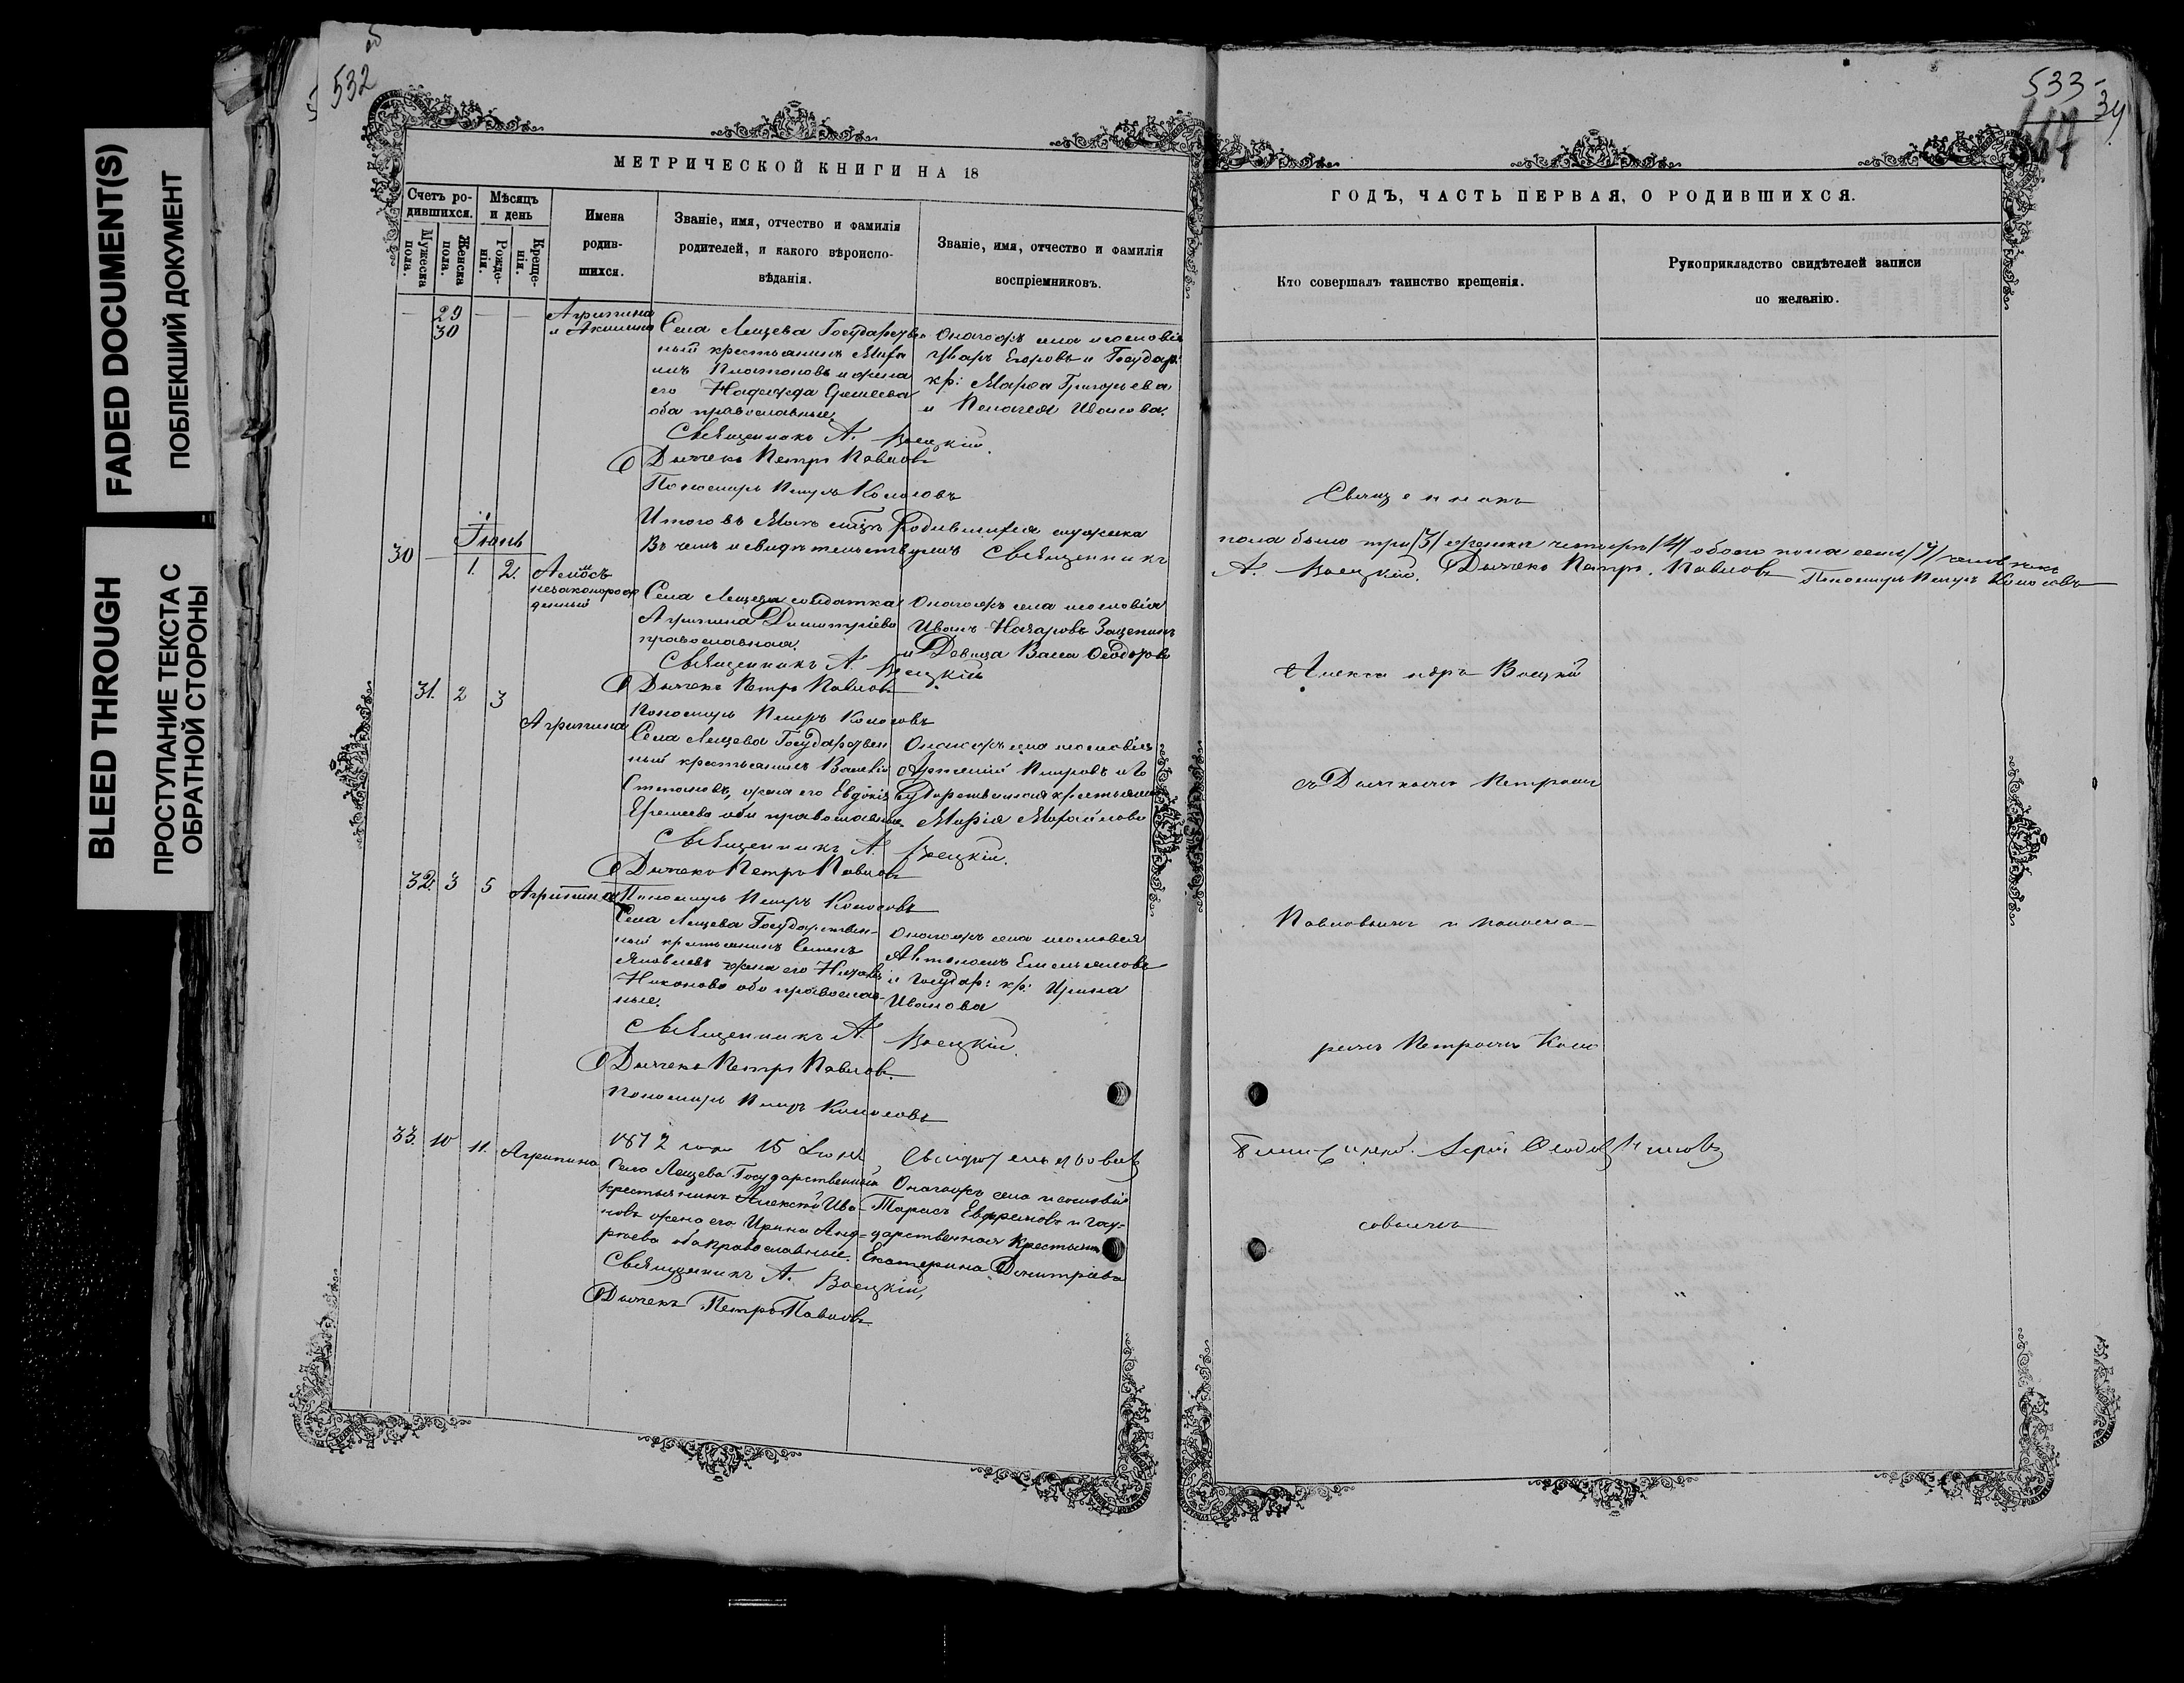 FADED DOCUMENT(S)
ПОБЛЕКШИЙ ДОКУМЕНТ
BLEED THROUGH
ПРОСТУПАНИЕ ТЕКСТА С
ОБРАТНОЙ СТОРОНЫ
532
533
34
МЕТРИЧЕСКОЙ КНИГИ НА 18
Счетъ ро-
дившихся.
Мужеска
пола.
Женска
пола.
Мѣсяцъ
и день
Рожде-
нія.
Креще-
нія.
Имена
родив-
шихся.
Званіе, имя, отчество и фамилія
родителей, и какого вѣроиспо-
вѣданія.
Званіе, имя, отчество и фамилія
воспріемниковъ.
29
30
Агрипина
и Акилина
Села Лещева Государствен
ный крестьянинъ
Платоновъ и жена
его Надежда
оба православные
Онагожъ села и сословія
Уваръ Егоровъ и Государ:
кр: Марфа Григорьева
и Пелагея Иванова.
Священникъ А. Воецкій.
Дьячекъ Петръ Павловъ
Пономарь Петръ Колосовъ
Итого въ Маѣ родившихся мужска
Въ чемъ и свидѣтельствуемъ Священникъ
Іюнь
30 1. 2. Амосъ
незаконорож
денный
Села Лещева солдатка
Агрипина Димитріева
православная.
Онагожъ села и сословія
Иванъ Назаровъ
и Девица Васса Ѳеодорова
Священникъ А. Воецкій
Дьячекъ Петръ Павловъ
Пономарь Петръ Колосовъ
31. 2 3
Агрипина
Села Лещева Государствен
ный крестьянинъ Василій
Степановъ, жена его Евдокія
Еремеева оба православные
Онагожъ села и сословія
Артемій Петровъ и Го
сударственная крестьянка
Марія Михайлова
Священникъ А. Воецкій.
Дьячекъ Петръ Павловъ
Пономарь Петръ Колосовъ
32. 3 5 Агрипина
Села Лещева Государствен-
ный крестьянинъ Семенъ
Яковлевъ жена его
Никонова оба православ-
ные.
Онагожъ села и сословія
Автономъ Емельяновъ
и Государ: кр: Ирина
Иванова
Священникъ А. Воецкій.
Дьячекъ Петръ Павловъ.
Пономарь Петръ Колосовъ
1872 года 15 Іюня
33. 10 11. Агрипина
Села Лещева Государственный
крестьянинъ Алексѣй Ива-
новъ жена его Ирина Анд-
реева оба православные.
Онагожъ села и сословія
Тарасъ Евфремовъ и госу-
дарственная крестьянка
Екатерина Димитріева
Священникъ А. Воецкій,
Дьячекъ Петръ Павловъ
ГОДЪ, ЧАСТЬ ПЕРВАЯ, О РОДИВШИХСЯ.
Кто совершалъ таинство крещенія.
Рукоприкладство свидѣтелей записи
по желанію.
Священникъ
пола было три /3/ женска четыре /4/ обоего пола семь /7/ человѣкъ
А. Воецкій. Дьячекъ Петръ Павловъ Пономарь Петръ Колосовъ
Александръ Воецкій
съ Дьячкомъ Петромъ
Павловымъ и понома-
ремъ Петромъ Коло
совымъ